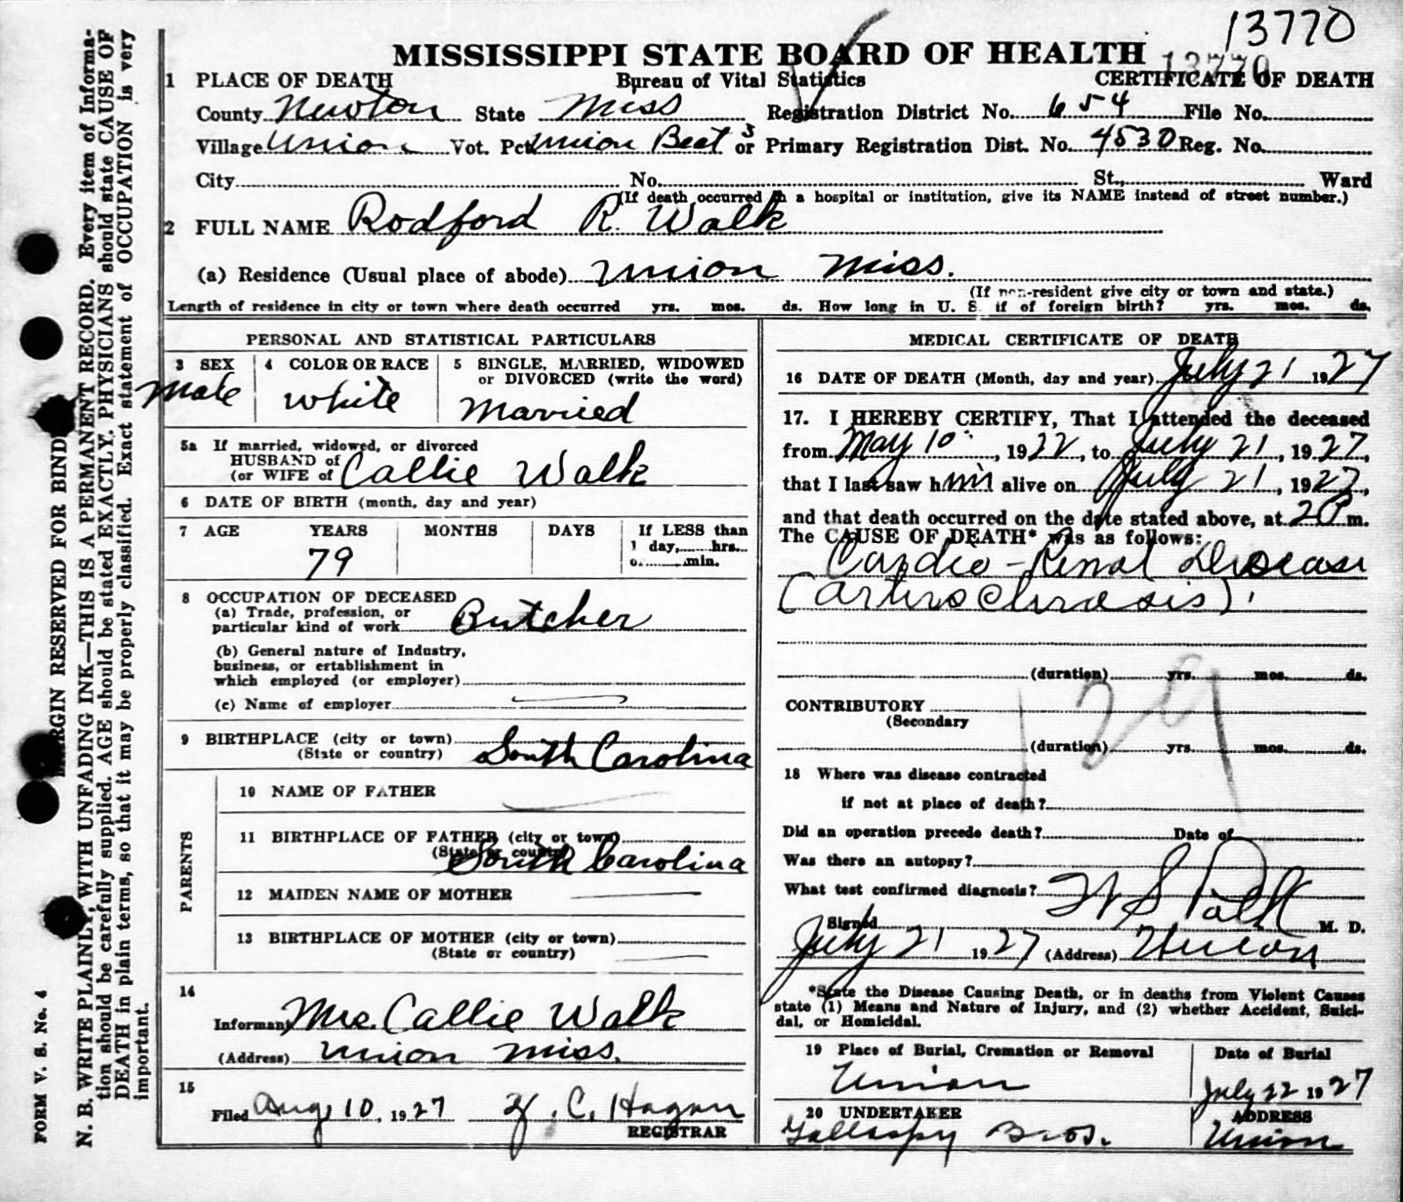 13770
MISSISSIPPI STATE BOARD OF HEALTH
13770
1 PLACE OF DEATH Bureau of Vital Statistics CERTIFICATE OF DEATH
County Newton State Miss Registration District No. 654 File No.
Village Union Vot. Pct. Union Beat 3 or Primary Registration Dist. No. 4530 Reg. No.
City No. St., Ward
(If death occurred in a hospital or institution, give its NAME instead of street number.)
2 FULL NAME Rodford R. Walk
(a) Residence (Usual place of abode) Union Miss.
(If non-resident give city or town and state.)
Length of residence in city or town where death occurred yrs. mos. ds. How long in U. S. if of foreign birth? yrs. mos. ds.
PERSONAL AND STATISTICAL PARTICULARS
3 SEX 4 COLOR OR RACE 5 SINGLE, MARRIED, WIDOWED
or DIVORCED (write the word)
Male White Married
5a If married, widowed, or divorced
HUSBAND of
(or WIFE of Callie Walk
6 DATE OF BIRTH (month, day and year)
7 AGE YEARS MONTHS DAYS If LESS than
1 day, hrs.
79 o. min.
8 OCCUPATION OF DECEASED
(a) Trade, profession, or
particular kind of work Butcher
(b) General nature of Industry,
business, or ertablishment in
which employed (or employer)
(c) Name of employer
9 BIRTHPLACE (city or town)
(State or country) South Carolina
PARENTS
10 NAME OF FATHER
11 BIRTHPLACE OF FATHER (city or town)
(State or country) South Carolina
12 MAIDEN NAME OF MOTHER
13 BIRTHPLACE OF MOTHER (city or town)
(State or country)
14
Informant Mrs. Callie Walk
(Address) Union Miss.
15
Filed Aug 10, 1927 Y. C. Hagan
REGISTRAR
MEDICAL CERTIFICATE OF DEATH
16 DATE OF DEATH (Month, day and year) July 21 1927
17. I HEREBY CERTIFY, That I attended the deceased
from May 10, 1922, to July 21, 1927,
that I last saw him alive on July 21, 1927,
and that death occurred on the date stated above, at 2 P m.
The CAUSE OF DEATH* was as follows:
Cardio-Renal Disease
(Arterosclerosis).
(duration) yrs. mos. ds.
129
CONTRIBUTORY
(Secondary
(duration) yrs. mos. ds.
18 Where was disease contracted
if not at place of death?
Did an operation precede death? Date of
Was there an autopsy?
What test confirmed diagnosis?
Signed W S M. D.
July 21 1927 (Address) Union
*State the Disease Causing Death, or in deaths from Violent Causes
state (1) Means and Nature of Injury, and (2) whether Accident, Suici-
dal, or Homicidal.
19 Place of Burial, Cremation or Removal Date of Burial
Union July 22 1927
20 UNDERTAKER ADDRESS
Gallaspy Bros. Union
FORM V. S. No. 4
MARGIN RESERVED FOR BIND
N. B. WRITE PLAINLY, WITH UNFADING INK—THIS IS A PERMANENT RECORD. Every item of Informa-
tion should be carefully supplied. AGE should be stated EXACTLY. PHYSICIANS should state CAUSE OF
DEATH in plain terms, so that it may be properly classified. Exact statement of OCCUPATION is very
important.